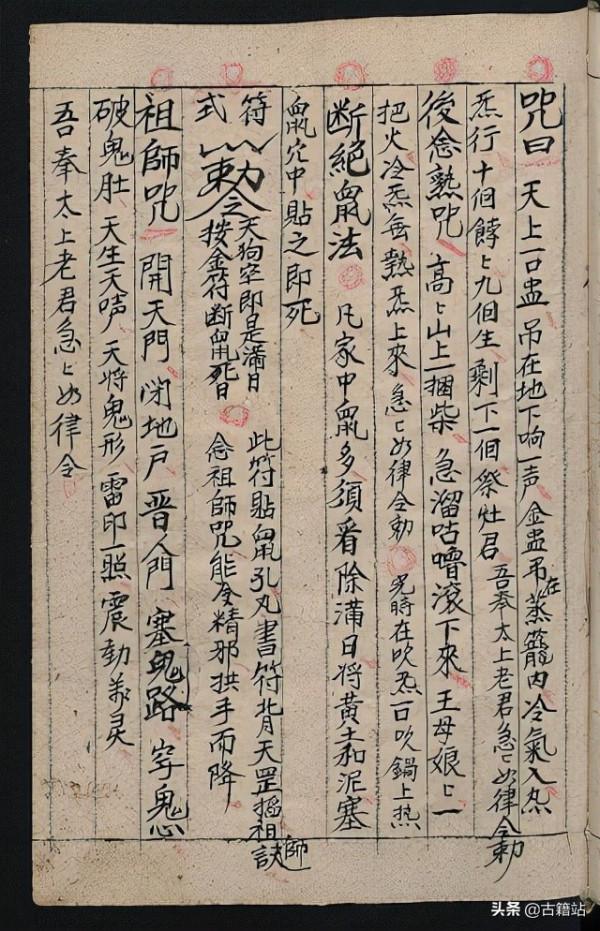 咒曰 天上一口盅 吊在地下响一声 金盅吊在蒸籠内冷氣入炁
炁行十個餑〻九個生 剩下一個祭灶君 吾奉太上老君急〻如律令勅
後念熱咒 高〻山上一捆柴 急溜咕嚕滾下來 王母娘〻一
把火冷炁每熱炁上來 急〻如律令勅 在吹炁一口吹鍋上热
断绝鼠法 凡家中鼠多須看除滿日将黃土和泥塞
鼠穴中貼之即死
符式 勅令 天狗室即是滿日 按金符断鼠死日 此符貼鼠孔丸書符背天罡搯祖師訣 念祖師咒能令精邪拱手而降
祖師咒 開天門 闭地户 晋人門 塞鬼路 字鬼心
破鬼肚 天生一天吽 天将鬼形 雷印一照 震動万灵
吾奉太上老君急〻如律令
头条 @古籍站